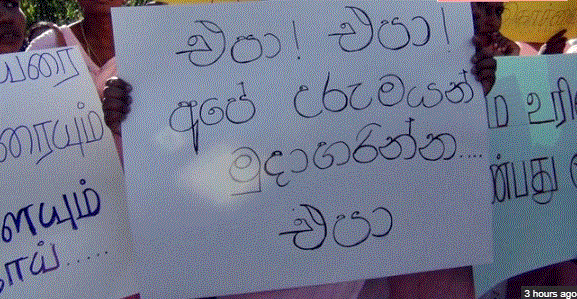 එපා! එපා!
අපේ උරුමයන්
මුදාහරින්න....
එපා
ரையும்
ளையும்
உரி
ன்பது
3 hours ago